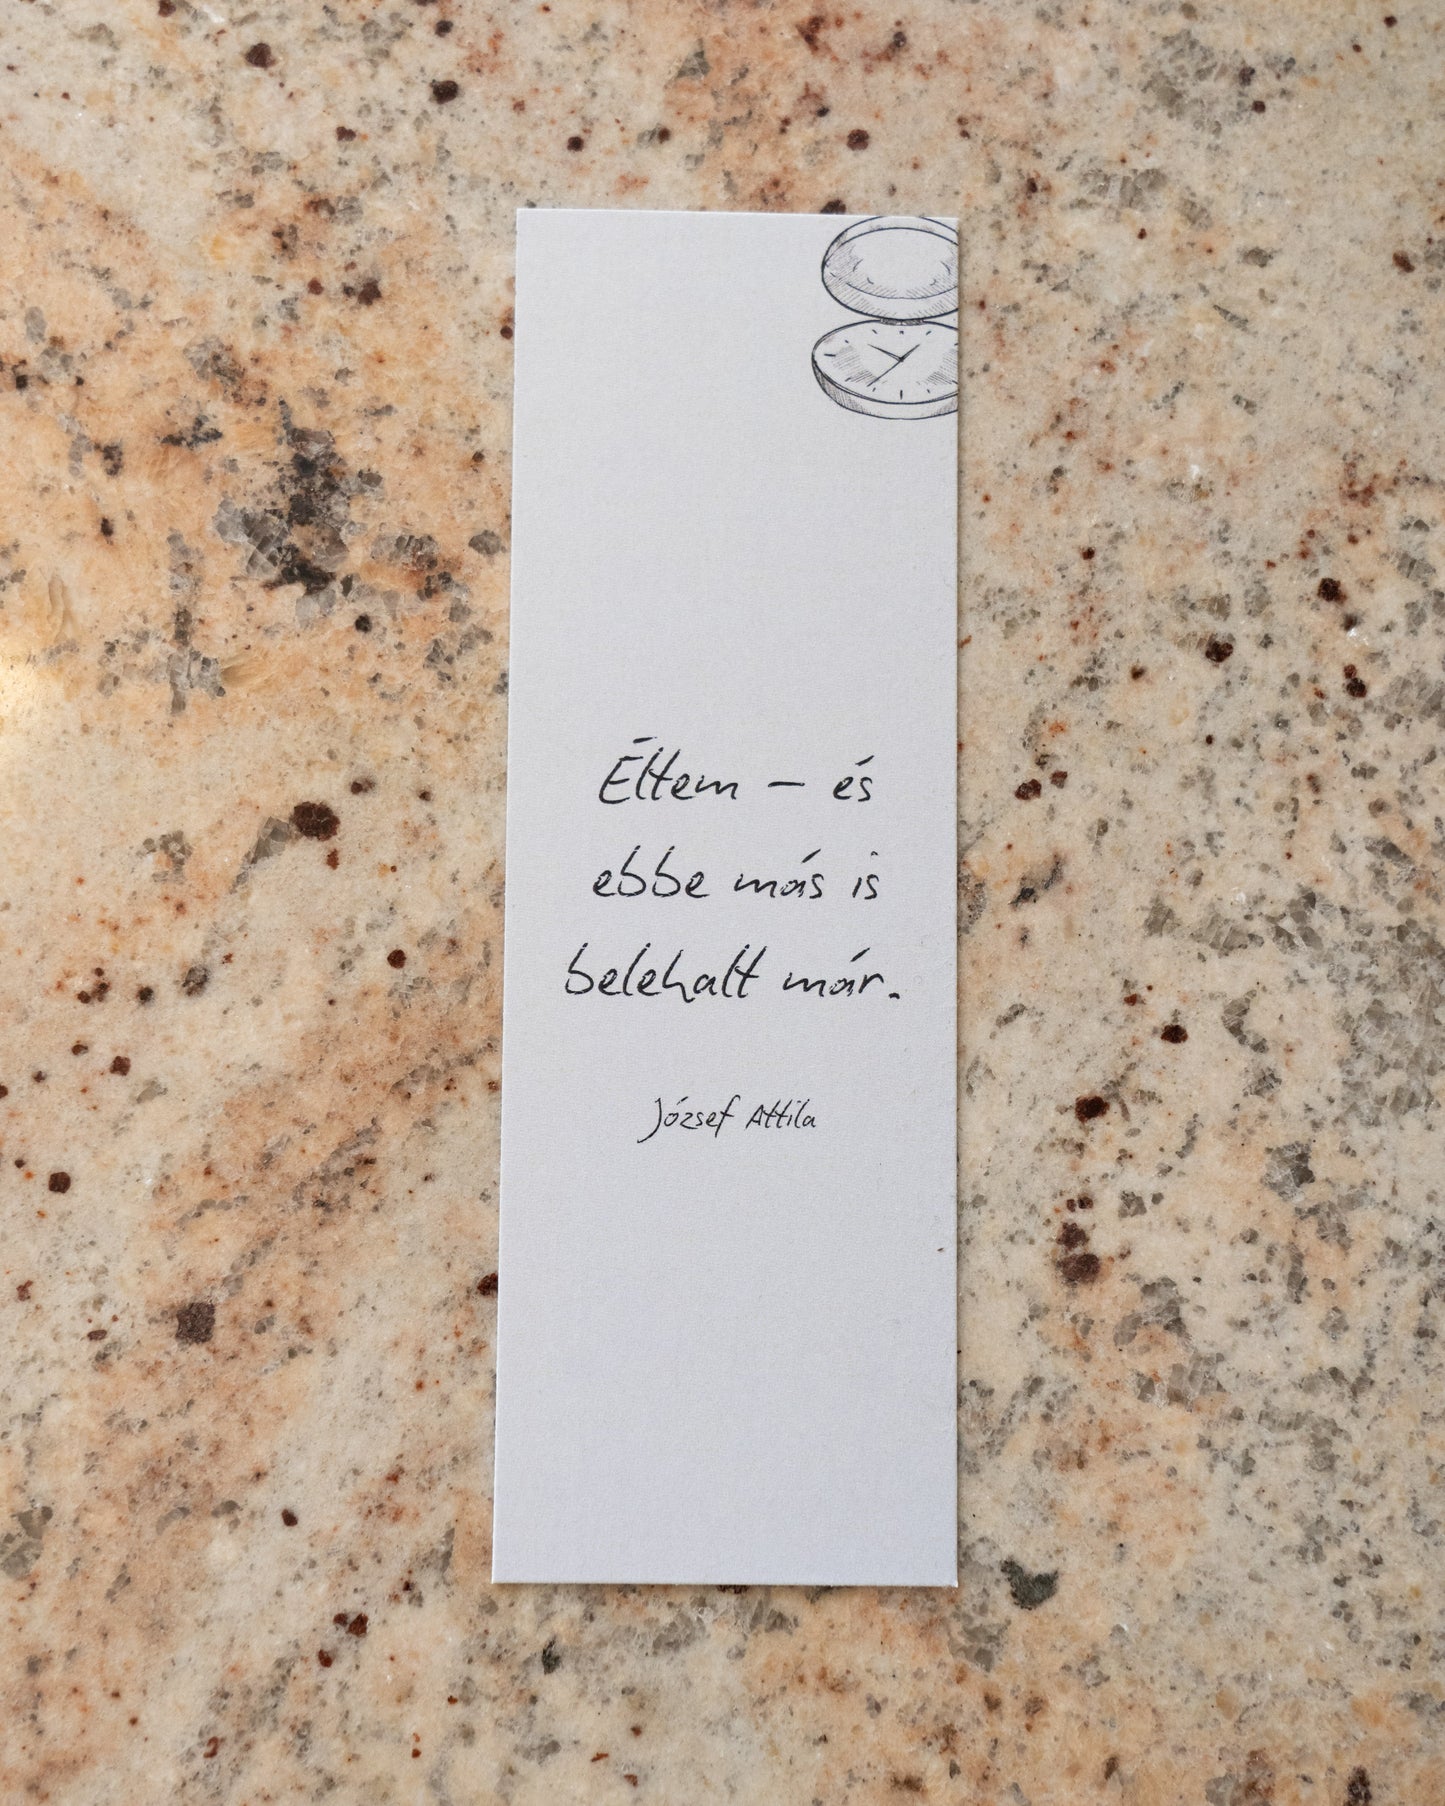 Éltem – és
ebbe más is
belehalt már.
József Attila